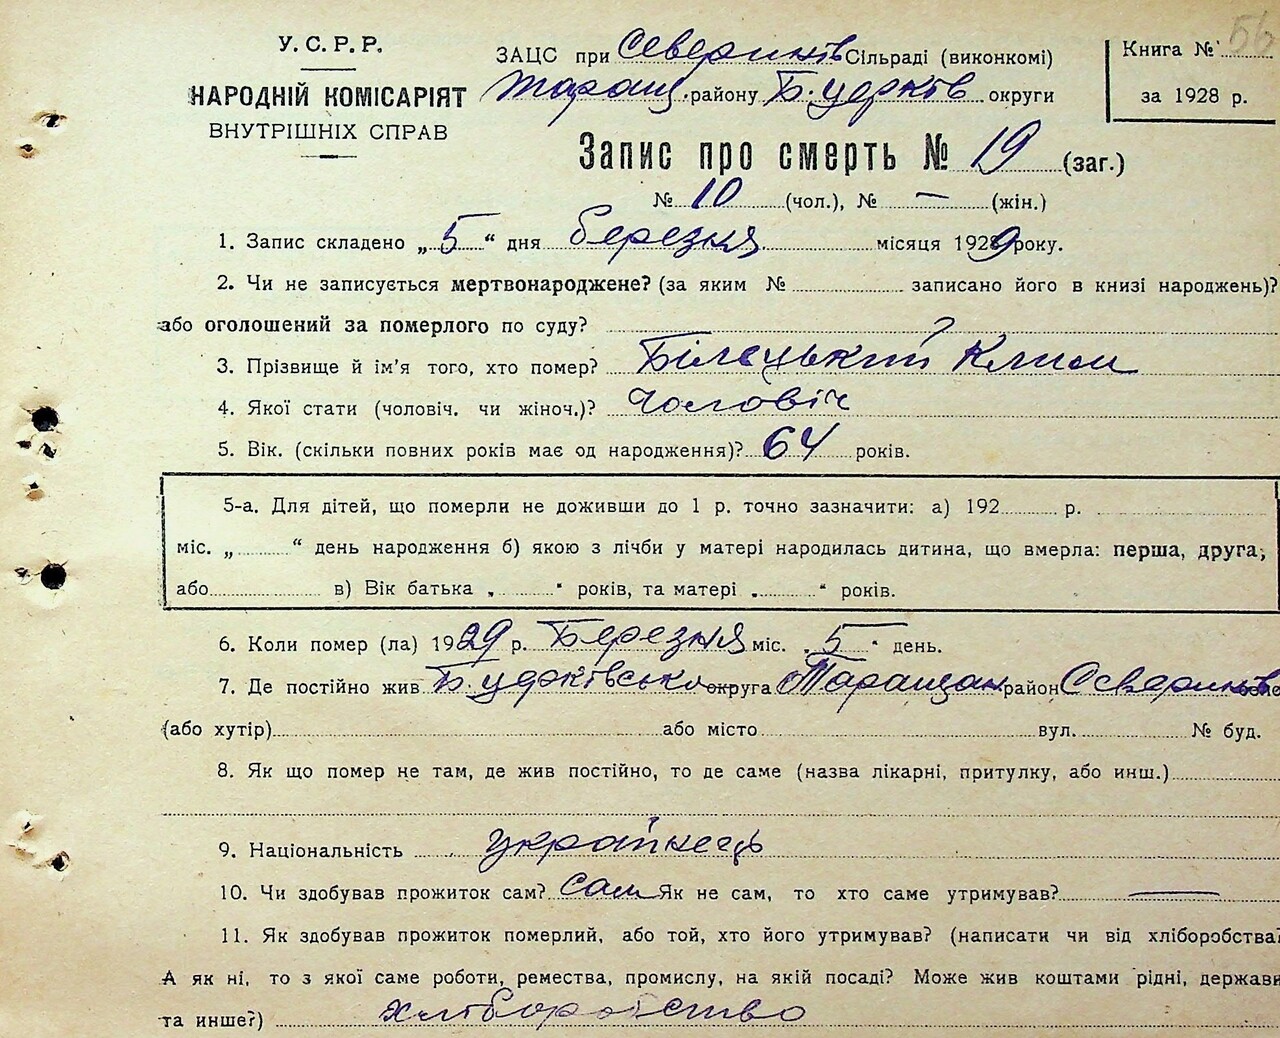 56
У.С.Р.Р.
НАРОДНІЙ КОМІСАРІЯТ
ВНУТРІШНІХ СПРАВ
ЗАЦС при Северинів Сільраді (виконкомі)
Таращ. району Б. церків округи
Книга №
за 1928 р.
Запис про смерть № 19 (заг.)
№ 10 (чол.), № — (жін.)
1. Запис складено „5“ дня березня місяця 1929 року.
2. Чи не записується мертвонароджене? (за яким № записано його в книзі народжень)?
або оголошений за померлого по суду?
3. Прізвище й ім'я того, хто помер? Білецький Клим
4. Якої статі (чоловіч. чи жіноч.)? Чоловіч
5. Вік. (скільки повних років має од народження)? 64 років.
5-а. Для дітей, що померли не доживши до 1 р. точно зазначити: а) 192 р.
міс. „ “ день народження б) якою з лічби у матері народилась дитина, що вмерла: перша, друга,
або в) Вік батька „ “ років, та матері „ “ років.
6. Коли помер (ла) 1929 р. Березня міс. „5“ день.
7. Де постійно жив Б. церківська округа Таращан район Северинів село
(або хутір) або місто вул. № буд.
8. Як що помер не там, де жив постійно, то де саме (назва лікарні, притулку, або инш.)
9. Національність українець
10. Чи здобував прожиток сам? Сам Як не сам, то хто саме утримував? —
11. Як здобував прожиток померлий, або той, хто його утримував? (написати чи від хліборобства?
А як ні, то з якої саме роботи, ремества, промислу, на якій посаді? Може жив коштами рідні, держави
та инше?) хліборобство